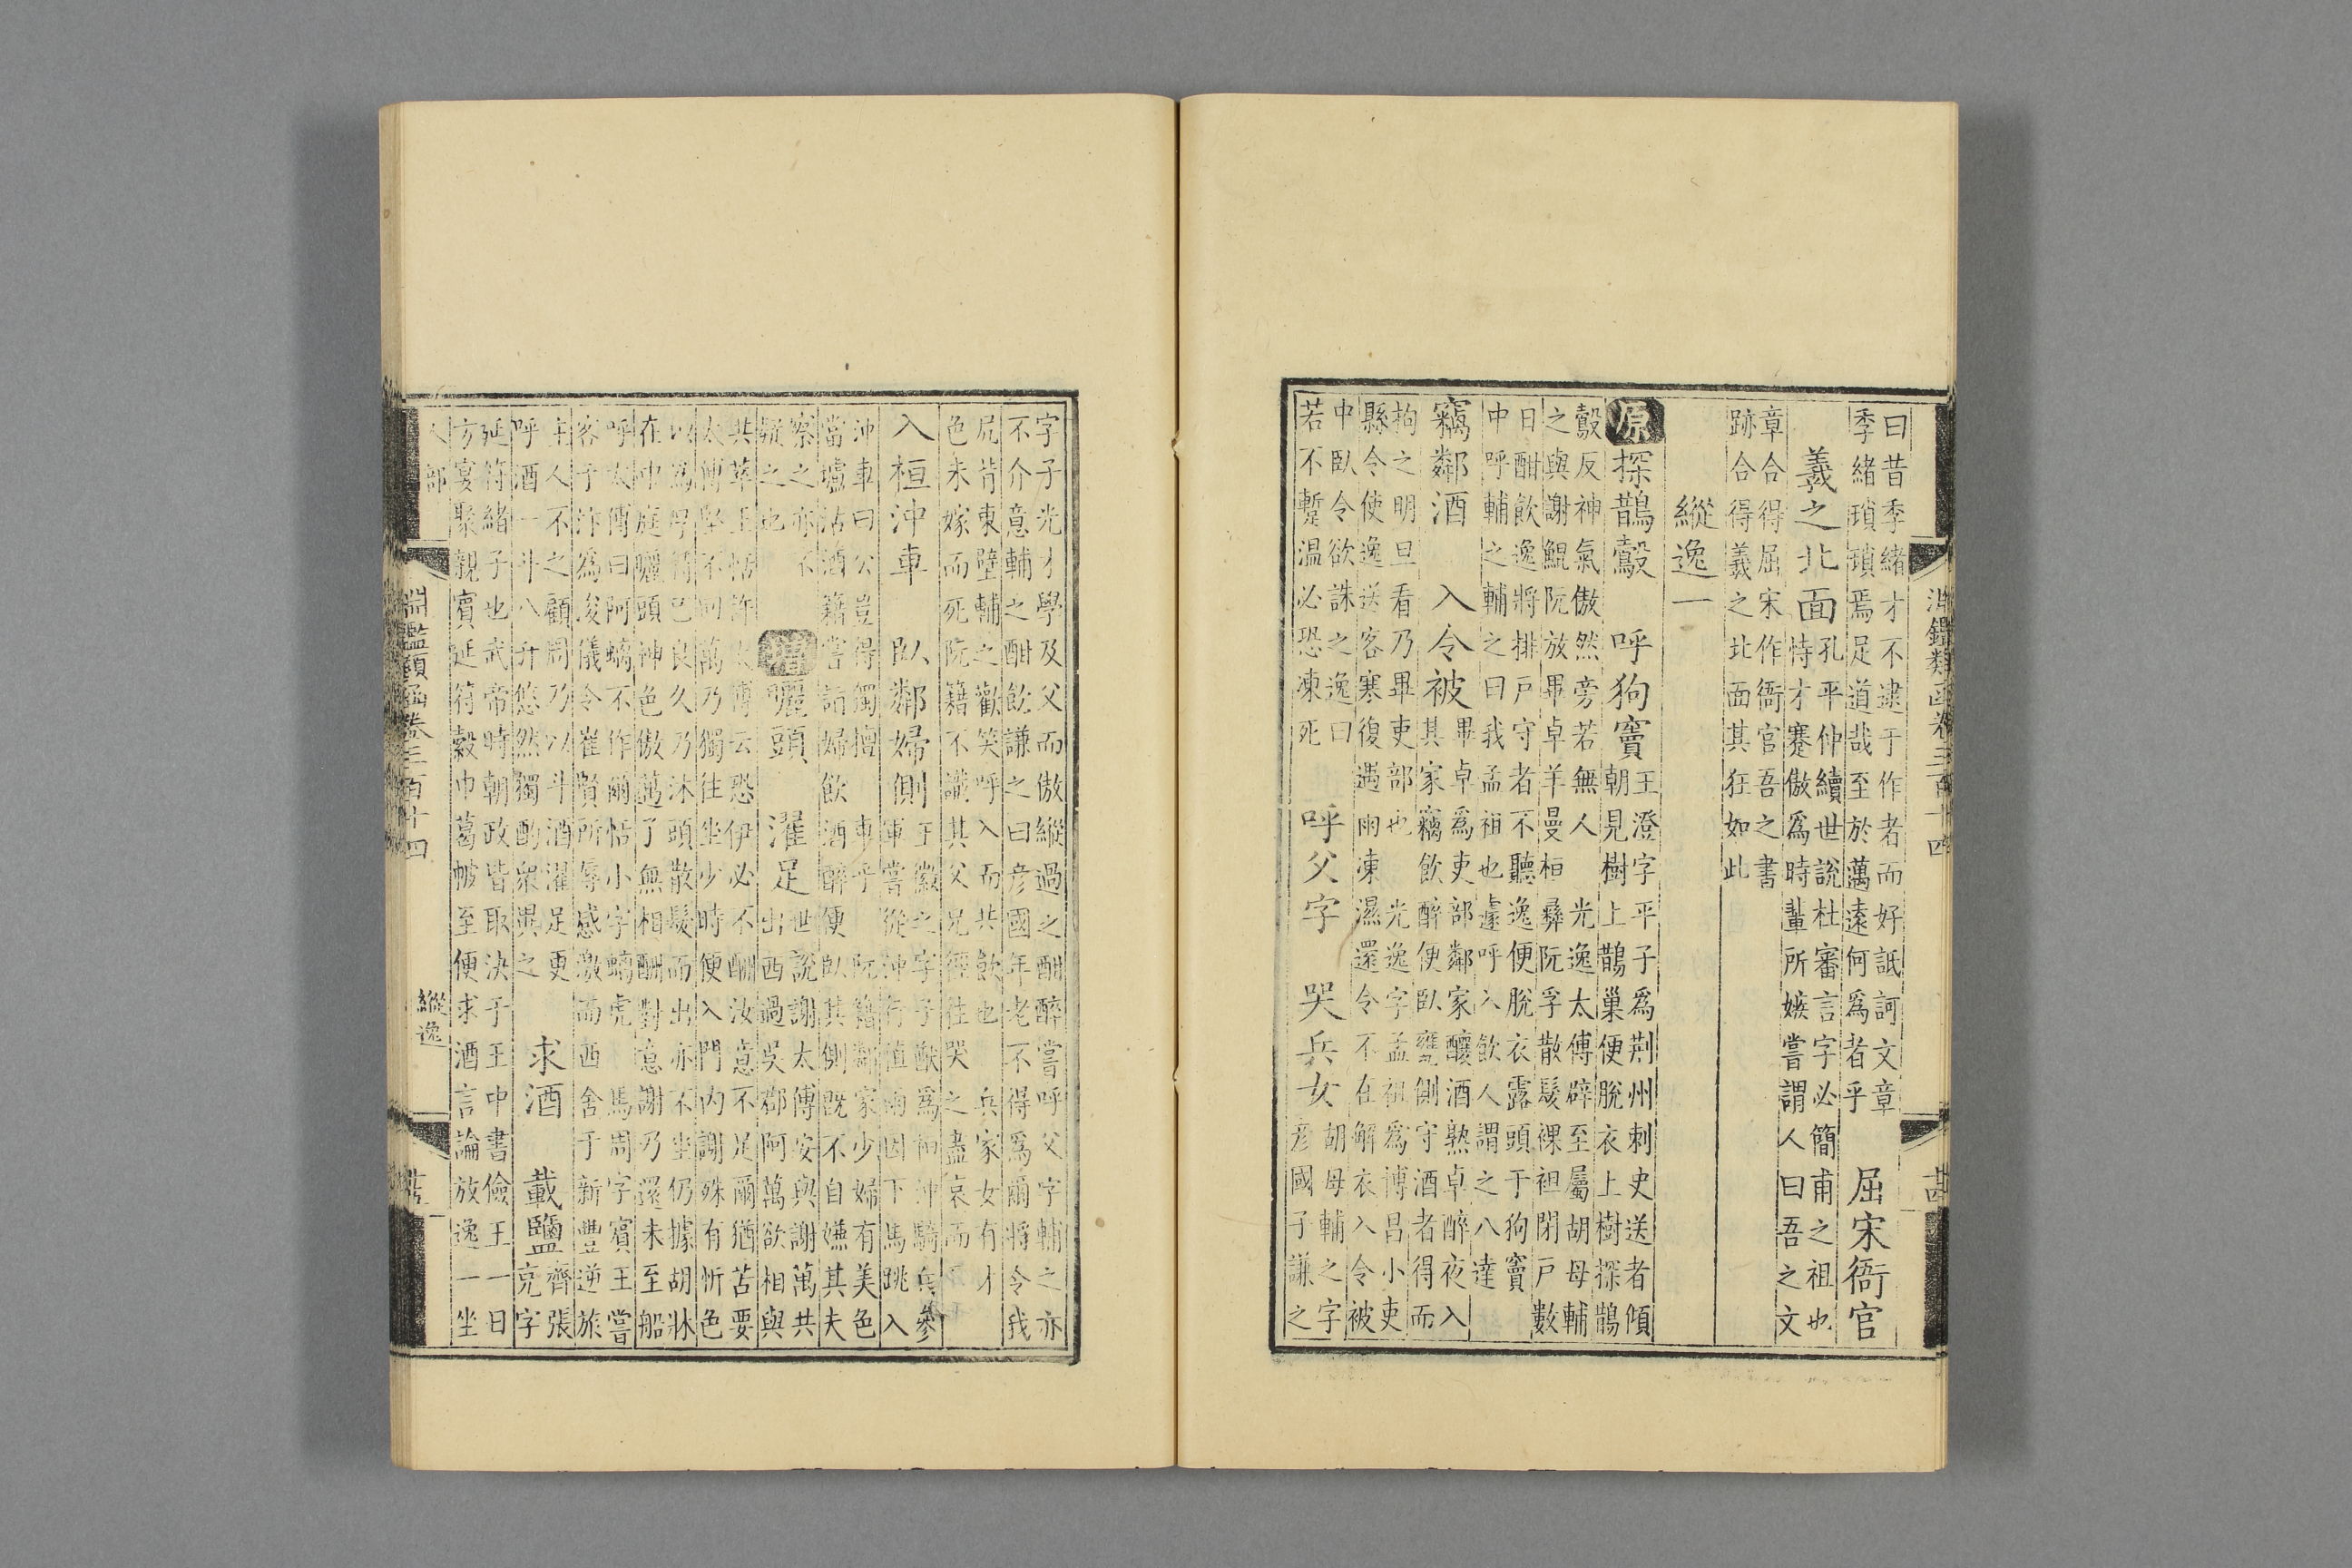 淵鑑類函卷三百十四
曰昔季緒才不逮于作者而好詆訶文章
季緒瑣瑣焉足道哉至於邁遠何爲者乎
屈宋衙官
義之北面
孔平仲續世說杜審言字必簡甫之祖也
恃才蹇傲爲時輩所嫉嘗謂人曰吾之文
章合得屈宋作衙官吾之書
跡合得義之北面其狂如此
縱逸一
原探鵲鷇
呼狗竇
王澄字平子爲荆州刺史送者傾
朝見樹上鵲巢便脫衣上樹探鵲
鷇反神氣傲然旁若無人
之與謝鯤阮放畢卓羊曼桓彝阮孚散髮裸袒閉戶數
光逸太傅辟至屬胡母輔
日酣飲逸將排戶守者不聽逸便脫衣露頭于狗竇
中呼輔之輔之曰我孟祖也遽呼入飲人謂之八達
竊鄰酒
入令被
畢卓爲吏部鄰家釀酒熟卓醉夜入
其家竊飲醉便臥甕側守酒者得而
拘之明旦看乃畢吏部也
光逸字孟祖爲博昌小吏
縣令使逸送客寒復遇雨凍濕還令不在解衣入令被
中臥令欲誅之逸曰
若不暫温必恐凍死
呼父字
哭兵女
胡母輔之字
彦國子謙之
字子光才學及父而傲縱過之酣醉嘗呼父字輔之亦
不介意輔之酣飲謙之曰彦國年老不得爲爾將令我
尻背東壁輔之歡笑呼入而共飲也
兵家女有才
色未嫁而死阮籍不識其父兄徑往哭之盡哀而
入桓沖車
臥鄰婦側
王徽之字子猷爲桓沖騎兵參
軍嘗從沖行值雨因下馬跳入
沖車曰公豈得獨擅
車乎
阮籍鄰家少婦有美色
當壚沽酒籍嘗詣婦飲酒醉便臥其側既不自嫌其夫
察之亦不
疑之也
增曬頭
濯足
世說謝太傅安與謝萬共
出西過吳郡阿萬欲相與
共萃王恬許太傅云恐伊必不酬汝意不足爾猶苦要
太傅堅不回萬乃獨往坐少時便入門内謝殊有忻色
以爲厚待已良久乃沐頭散髮而出亦不坐仍據胡牀
在中庭曬頭神色傲邁了無相酬對意謝乃還未至船
呼太傅曰阿螭不作爾恬小字螭虎
馬周字賓王嘗
客于汴爲浚儀令崔賢所辱感激而西舍于新豐逆旅
主人不之顧周乃以斗酒濯足更
呼酒一斗八升悠然獨酌衆異之
求酒
載鹽
齊張
充字
延符緒子也武帝時朝政皆取決于王中書儉王一日
方宴聚親賓延符縠巾葛帔至便求酒言論放逸一坐
人部
淵鑑類函卷三百十四
縱逸